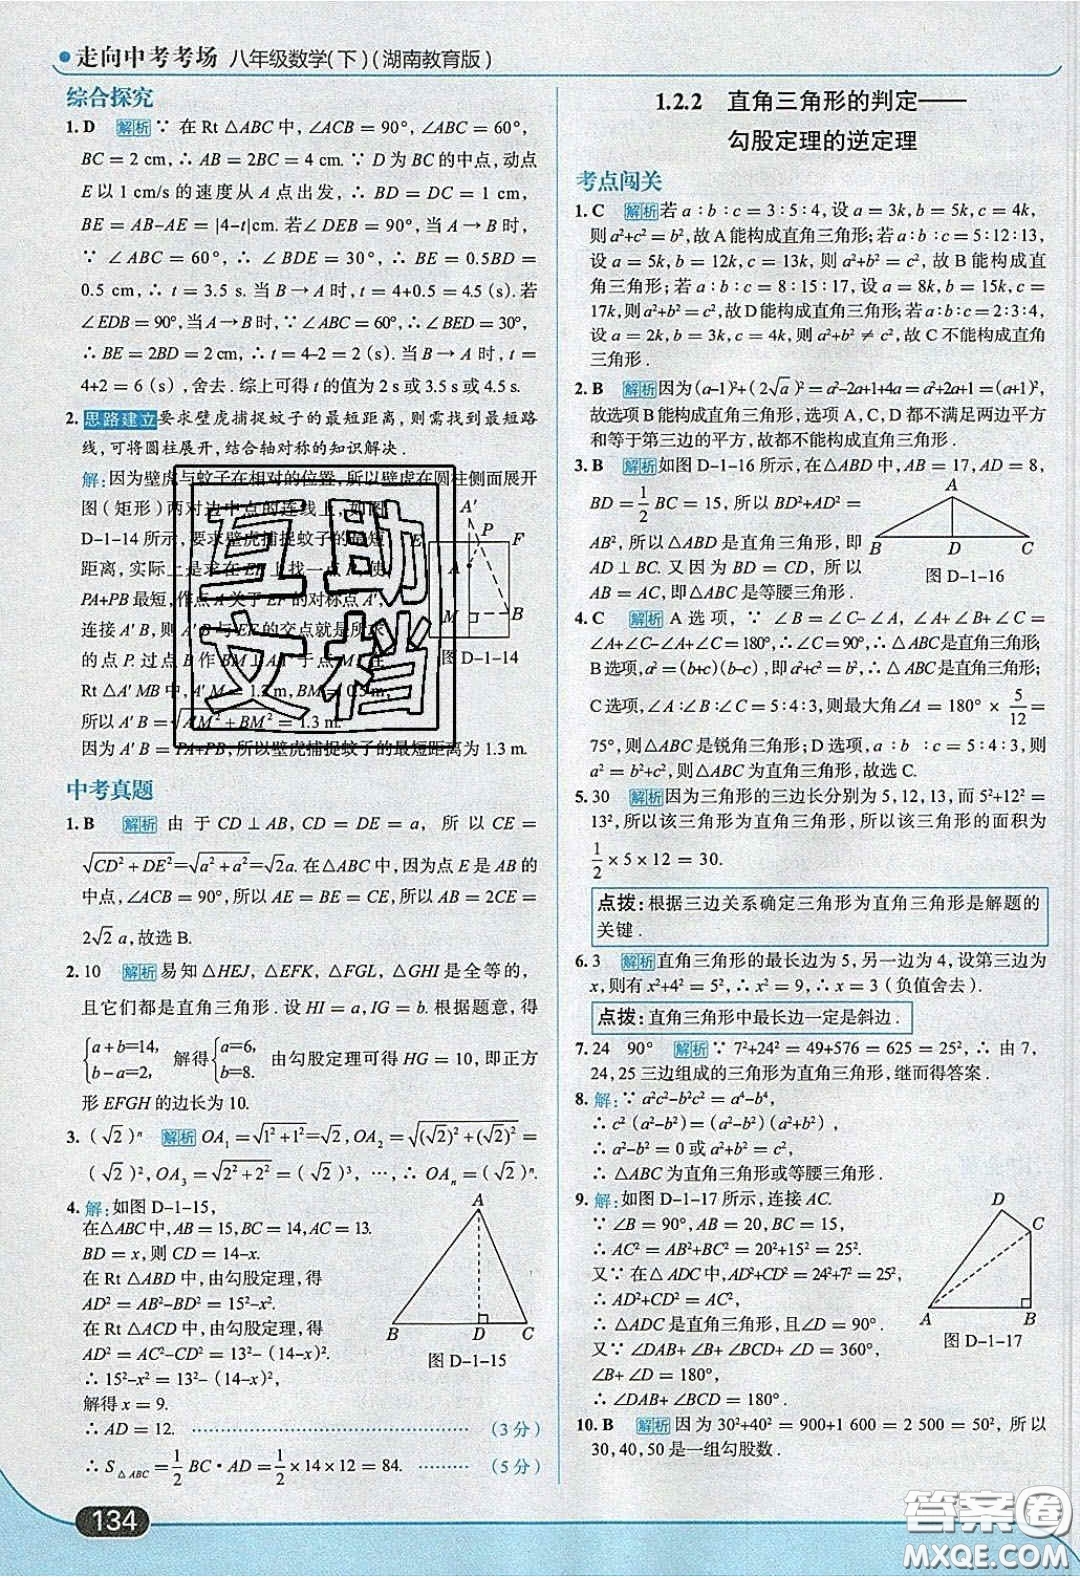 走向中考考场 八年级数学(下)(湖南教育版)
综合探究
1. D 解析 ∵ 在 Rt △ABC 中, ∠ACB = 90°, ∠ABC = 60°,
BC = 2 cm, ∴ AB = 2BC = 4 cm. ∵ D 为 BC 的中点, 动点
E 以 1 cm/s 的速度从 A 点出发, ∴ BD = DC = 1 cm,
BE = AB-AE = |4-t|cm. 若∠DEB = 90°, 当 A→B 时,
∵ ∠ABC = 60°, ∴ ∠BDE = 30°, ∴ BE = 0.5BD =
0.5 cm, ∴ t = 3.5 s. 当 B→A 时, t = 4+0.5 = 4.5(s). 若
∠EDB = 90°, 当 A→B 时, ∵∠ABC = 60°, ∴∠BED = 30°,
∴ BE = 2BD = 2 cm, ∴ t = 4-2 = 2 (s). 当 B→A 时, t =
4+2 = 6 (s), 舍去. 综上可得 t 的值为 2 s 或 3.5 s 或 4.5 s.
2. 思路建立 要求壁虎捕捉蚊子的最短距离, 则需找到最短路
线, 可将圆柱展开, 结合轴对称的知识解决.
解: 因为壁虎与蚊子在相对的位置, 所以壁虎在圆柱侧面展开
图 (矩形) 两对边中点的连线上, 如图
D-1-14 所示, 要求壁虎捕捉蚊子的最短
距离, 实际上是求在 EF 上找一点 P, 使
PA+PB 最短, 作点 A 关于 EF 的对称点 A′,
连接 A′B, 则 A′B 与 EF 的交点就是所求
的点 P. 过点 B 作 BM⊥AA′ 于点 M, 在
Rt △A′MB 中, A′M = 1.2 m, BM = 0.5 m,
所以 A′B = √(A′M² + BM²) = 1.3 m.
因为 A′B = PA+PB, 所以壁虎捕捉蚊子的最短距离为 1.3 m.
A′
E P F
A
M B
图 D-1-14
互助
文档
中考真题
1. B 解析 由于 CD⊥AB, CD = DE = a, 所以 CE =
√(CD² + DE²) = √(a² + a²) = √2a. 在△ABC 中, 因为点 E 是 AB 的
中点, ∠ACB = 90°, 所以 AE = BE = CE, 所以 AB = 2CE =
2√2 a, 故选 B.
2. 10 解析 易知△HEJ, △EFK, △FGL, △GHI 是全等的,
且它们都是直角三角形. 设 HI = a, IG = b. 根据题意, 得
{a + b=14, b - a=2, 解得{a=6, b=8. 由勾股定理可得 HG = 10, 即正方
形 EFGH 的边长为 10.
3. (√2)ⁿ 解析 OA₁ = √(1²+1²) = √2, OA₂ = √((√2)²+(√2)²) =
(√2)², OA₃ = √(2²+2²) = (√2)³, …, ∴ OAₙ = (√2)ⁿ.
4. 解: 如图 D-1-15,
在△ABC 中, AB = 15, BC = 14, AC = 13.
BD = x, 则 CD = 14-x.
在 Rt △ABD 中, 由勾股定理, 得
AD² = AB²-BD² = 15²-x².
在 Rt △ACD 中, 由勾股定理, 得
AD² = AC²-CD² = 13²-(14-x)².
∴ 15²-x² = 13²-(14-x)².
解得 x = 9.
∴ AD = 12. …… (3 分)
∴ S△ABC = 1/2 BC·AD = 1/2 ×14×12 = 84. …… (5 分)
A
B D C
图 D-1-15
134
1.2.2 直角三角形的判定——
勾股定理的逆定理
考点闯关
1. C 解析 若 a∶b∶c = 3∶5∶4, 设 a = 3k, b = 5k, c = 4k,
则 a²+c² = b², 故 A 能构成直角三角形; 若 a∶b∶c=5∶12∶13,
设 a = 5k, b = 12k, c = 13k, 则 a²+b² = c², 故 B 能构成直
角三角形; 若 a∶b∶c = 8∶15∶17, 设 a = 8k, b = 15k, c =
17k, 则 a²+b² = c², 故 D 能构成直角三角形; 若 a∶b∶c=2∶3∶4,
设 a = 2k, b = 3k, c = 4k, 则 a²+b² ≠ c², 故 C 不能构成直角
三角形.
2. B 解析 因为 (a-1)²+(2√a)² = a²-2a+1+4a = a²+2a+1 = (a+1)²,
故选项 B 能构成直角三角形, 选项 A, C, D 都不满足两边平方
和等于第三边的平方, 故都不能构成直角三角形.
3. B 解析 如图 D-1-16 所示, 在△ABD 中, AB = 17, AD = 8,
BD = 1/2 BC = 15, 所以 BD²+AD² =
AB², 所以△ABD 是直角三角形, 即
AD⊥BC. 又因为 BD = CD, 所以
AB = AC, 即△ABC 是等腰三角形.
A
B D C
图 D-1-16
4. C 解析 A 选项, ∵∠B = ∠C-∠A, ∠A+∠B+∠C =
∠A+∠C-∠A+∠C=180°, ∴∠C=90°, ∴△ABC 是直角三角形;
B 选项, a² = (b+c)(b-c), 即 a²+c² = b², ∴△ABC 是直角三角形;
C 选项, ∠A∶∠B∶∠C = 5∶4∶3, 则最大角∠A = 180° × 5/12 =
75°, 则△ABC 是锐角三角形; D 选项, a∶c∶b = 5∶4∶3, 则
a² = b²+c², 则△ABC 为直角三角形, 故选 C.
5. 30 解析 因为三角形的三边长分别为 5, 12, 13, 而 5²+12² =
13², 所以该三角形为直角三角形, 所以该三角形的面积为
1/2 × 5 × 12 = 30.
点拨: 根据三边关系确定三角形为直角三角形是解题的
关键.
6. 3 解析 直角三角形的最长边为 5, 另一边为 4, 设第三边为
x, 则有 x²+4² = 5², ∴ x² = 9, ∴ x = 3 (负值舍去).
点拨: 直角三角形中最长边一定是斜边.
7. 24 90° 解析 ∵ 7²+24² = 49+576 = 625 = 25², ∴ 由 7,
24, 25 三边组成的三角形为直角三角形, 继而得答案.
8. 解: ∵ a²c²-b²c² = a⁴-b⁴,
∴ c² (a²-b²) = (a²-b²)(a²+b²),
∴ a²-b² = 0 或 a²+b² = c²,
∴ △ABC 为直角三角形或等腰三角形.
9. 解: 如图 D-1-17 所示, 连接 AC.
∵ ∠B = 90°, AB = 20, BC = 15,
∴ AC² = AB²+BC² = 20²+15² = 25².
又∵ 在△ADC 中, AD²+CD² = 24²+7² = 25²,
∴ AD²+CD² = AC²,
∴ △ADC 是直角三角形, 且∠D = 90°.
又∵ ∠DAB+ ∠B+ ∠BCD+ ∠D = 360°,
∠B+ ∠D = 180°,
∴ ∠DAB+ ∠BCD = 180°.
D
C
A B
图 D-1-17
10. B 解析 因为 30²+40² = 900+1 600 = 2 500 = 50², 所以
30, 40, 50 是一组勾股数.
答案圈
MXQE.COM